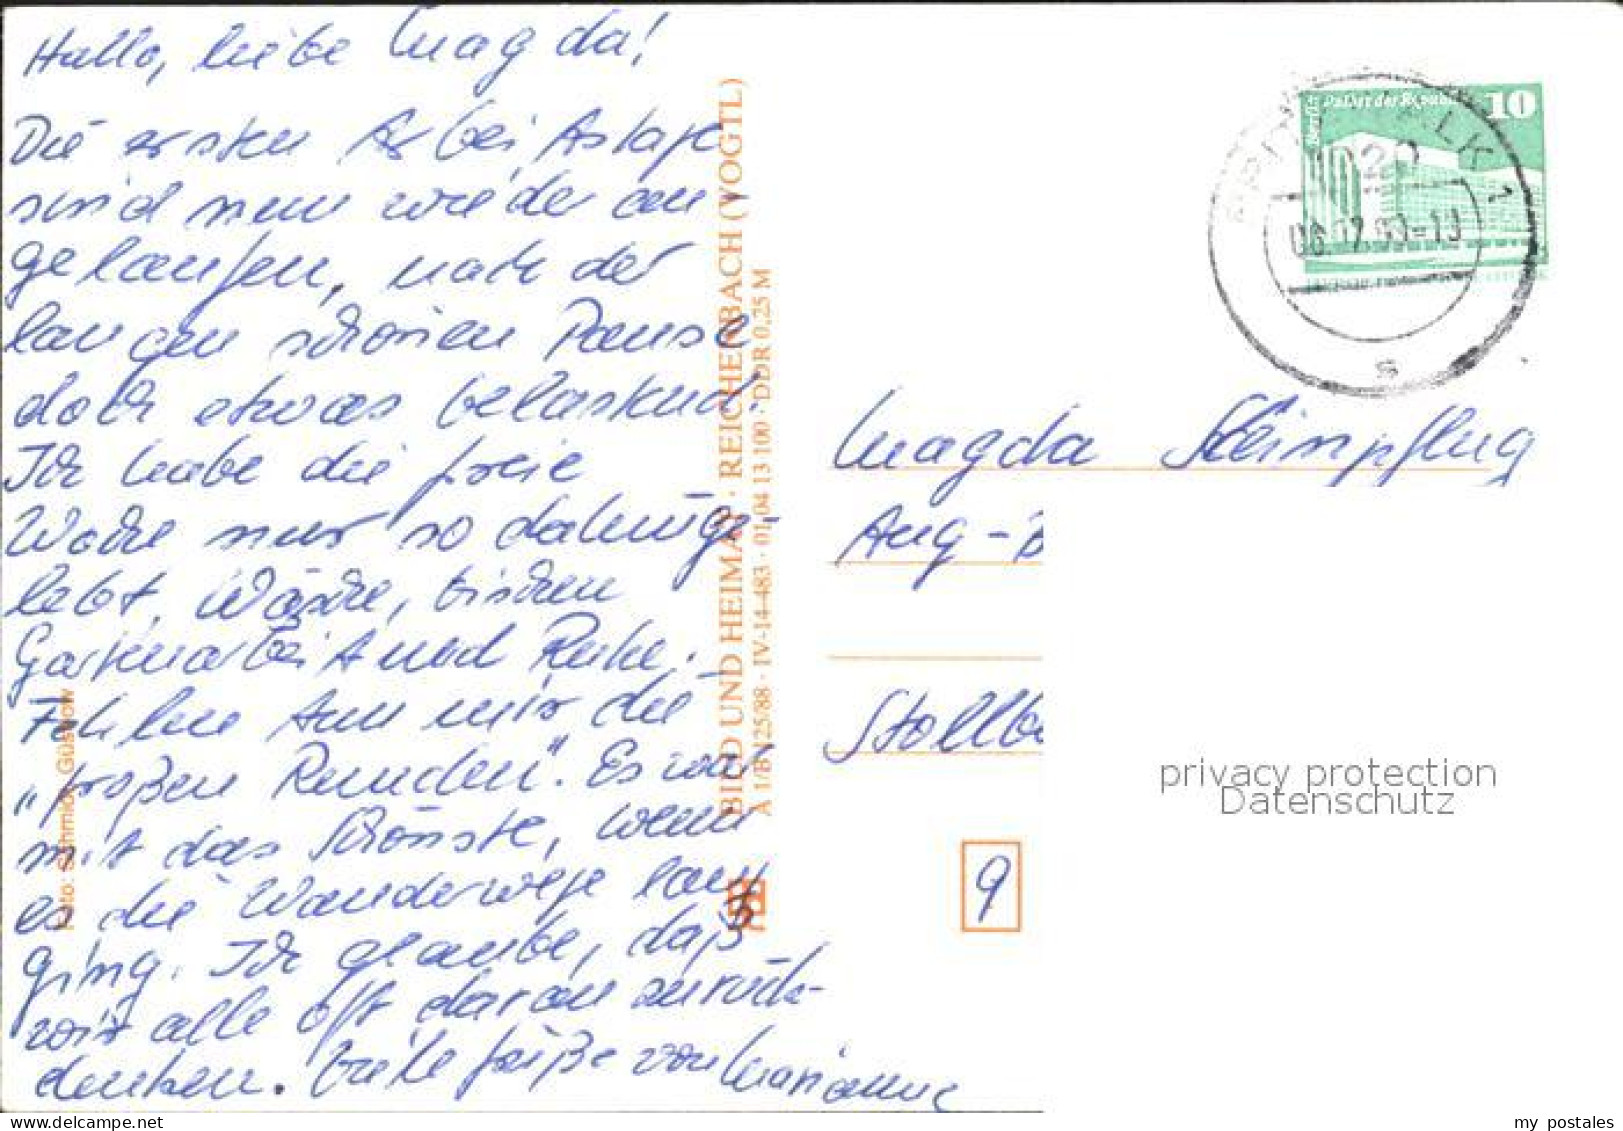 Hallo, liebe Magda!
Die ersten Arbeitstage
sind nun wieder an-
gelaufen, nach der
langen schönen Pause
doch etwas belastend.
Ich habe die freie
Woche nur so dahinge-
lebt, Wäsche, bißchen
Gartenarbeit und Ruhe.
Fehlen tun mir die
"großen Runden". Es war
mit das Schönste, wenn
es die Wanderwege lang
ging. Ich glaube, daß
wir alle oft daran zurück-
denken. Viele Grüße von Marianne
Foto: Schmidt, Güstrow
BILD UND HEIMAT · REICHENBACH (VOGTL)
A 1/B 125/88 · IV-14-483 · 01 04 13 100 · DDR 0,25 M
Berlin Palast der Republik 10
1920
s
Magda Steinpflug
Aug-B
Stollbe
9
privacy protection
Datenschutz
my postales